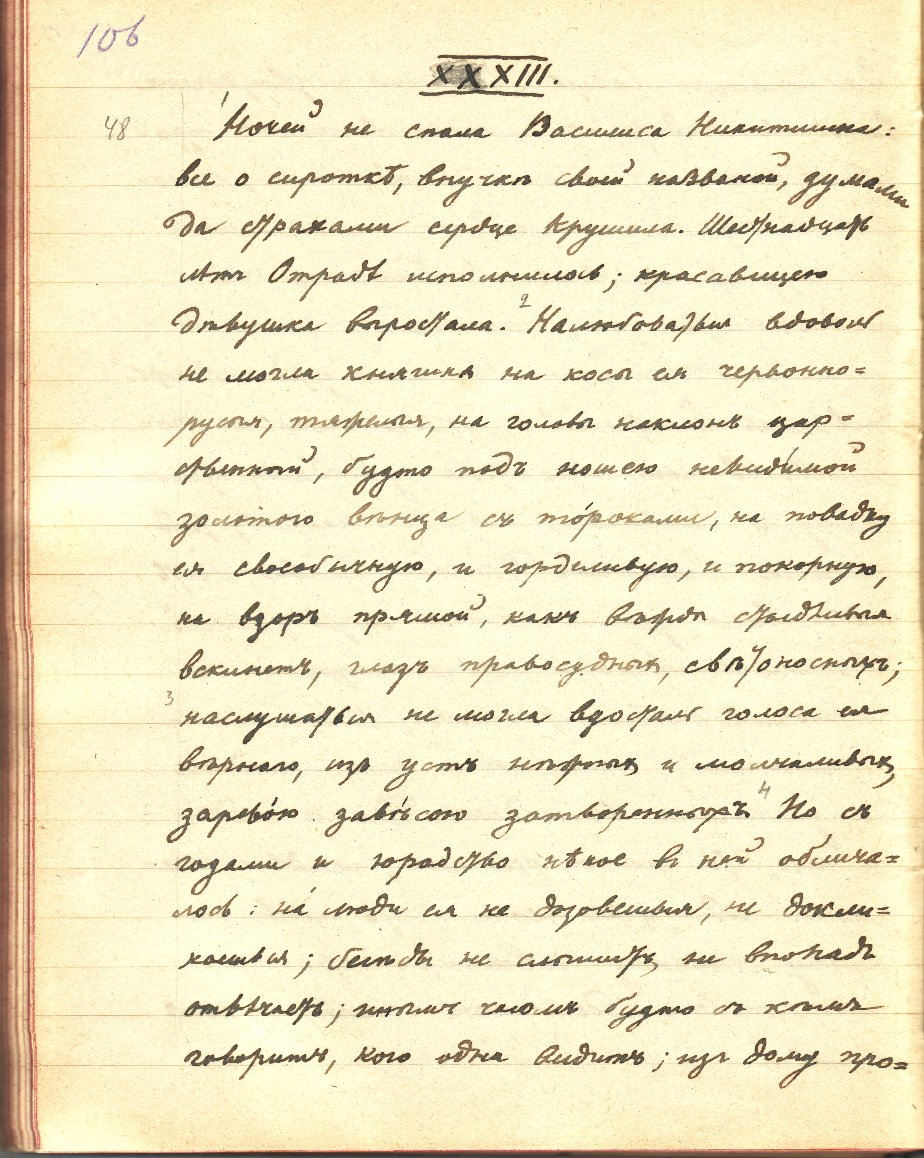 106
XXXIII.
48
1
Ночей не спала Василиса Никитишна:
все о сироткѣ, внучкѣ своей названой, думами
да страхами сердце крушила. Шестнадцать
лѣтъ Отрадѣ исполнилось; красавицею
дѣвушка выростала. 2 Налюбоваться вдоволь
не могла княгиня на косы ея червонно=
русыя, тяжелыя, на головы наклонъ цар=
ственный, будто подъ ношею неви́димой
золотого вѣнца съ то́роками, на повадку
ея своеобычную, и горделивую, и покорную,
на взоръ прямой, какъ вѣжды стыдливыя
вскинетъ, глазъ правосудныхъ, свѣтоносныхъ;
3
наслушаться не могла вдосталь голоса ея
вѣрнаго, изъ устъ нѣжныхъ и молчаливыхъ,
зарево́ю завѣсою затворенныхъ. 4 Но съ
годами и юродство нѣкое въ ней облича=
лось: на́ люди ея не дозовешься, не докли=
каешься; бесѣды не слышитъ, не впопадъ
отвѣчаетъ; инымъ часомъ будто съ кѣмъ
говоритъ, кого одна видитъ; изъ дому про=